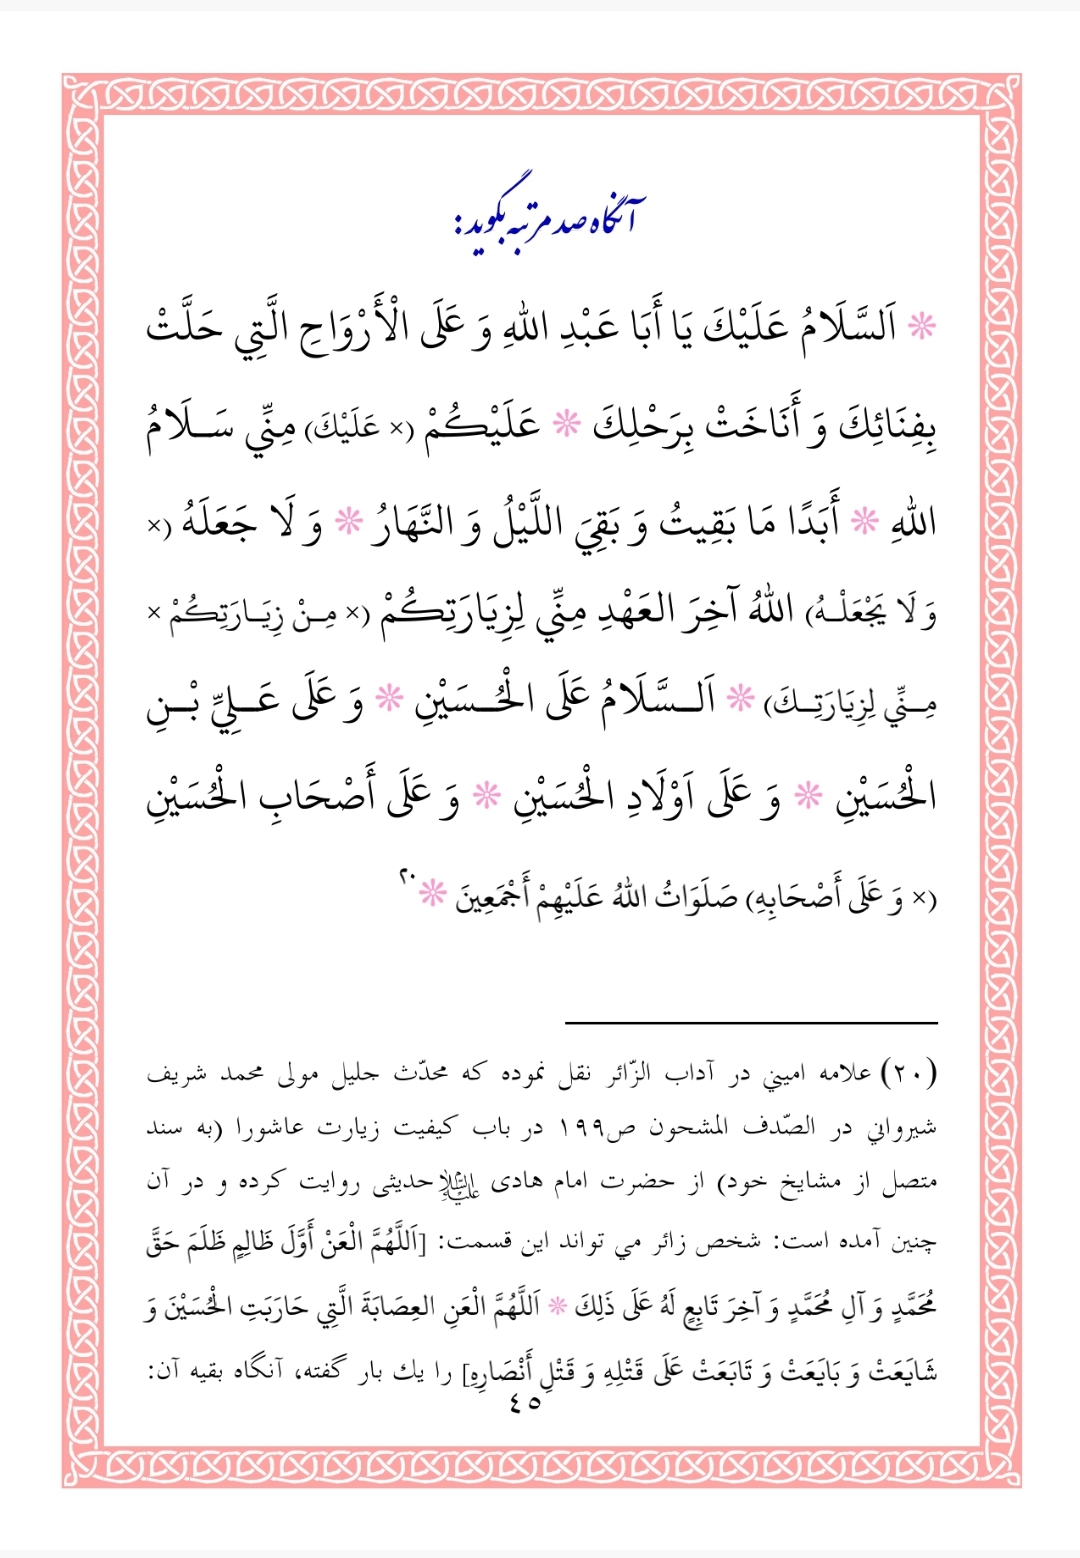 آنگاه صد مرتبه بگوید:
❊ اَلسَّلَامُ عَلَيْكَ يَا أَبَا عَبْدِ اللهِ وَ عَلَى الْأَرْوَاحِ الَّتِي حَلَّتْ
بِفِنَائِكَ وَ أَنَاخَتْ بِرَحْلِكَ ❊ عَلَيْكُمْ (× عَلَيْكَ) مِنِّي سَـلَامُ
اللهِ ❊ أَبَدًا مَا بَقِيتُ وَ بَقِيَ اللَّيْلُ وَ النَّهَارُ ❊ وَ لَا جَعَلَهُ (×
وَ لَا يَجْعَلْـهُ) اللهُ آخِرَ العَهْدِ مِنِّي لِزِيَارَتِكُمْ (× مِـنْ زِيَـارَتِكُمْ ×
مِـنِّي لِزِيَارَتِـكَ) ❊ اَلـسَّلَامُ عَلَى الْحُـسَيْنِ ❊ وَ عَلَى عَـلِيِّ بْـنِ
الْحُسَيْنِ ❊ وَ عَلَى اَوْلَادِ الْحُسَيْنِ ❊ وَ عَلَى أَصْحَابِ الْحُسَيْنِ
(× وَ عَلَى أَصْحَابِهِ) صَلَوَاتُ اللهُ عَلَيْهِمْ أَجْمَعِينَ ❊ ٢٠
(٢٠) علامه اميني در آداب الزّائر نقل نموده كه محدّث جليل مولى محمد شريف
شيرواني در الصّدف المشحون ص١٩٩ در باب كيفيت زيارت عاشورا (به سند
متصل از مشايخ خود) از حضرت امام هادى عليه السلام حديثى روايت كرده و در آن
چنين آمده است: شخص زائر مي تواند اين قسمت: [اَللَّهُمَّ الْعَنْ أَوَّلَ ظَالِمٍ ظَلَمَ حَقَّ
مُحَمَّدٍ وَ آلِ مُحَمَّدٍ وَ آخِرَ تَابِعٍ لَهُ عَلَى ذَلِكَ ❊ اَللَّهُمَّ الْعَنِ العِصَابَةَ الَّتِي حَارَبَتِ الْحُسَيْنَ وَ
شَايَعَتْ وَ بَايَعَتْ وَ تَابَعَتْ عَلَى قَتْلِهِ وَ قَتْلِ أَنْصَارِهِ] را يك بار گفته، آنگاه بقيه آن:
٤٥